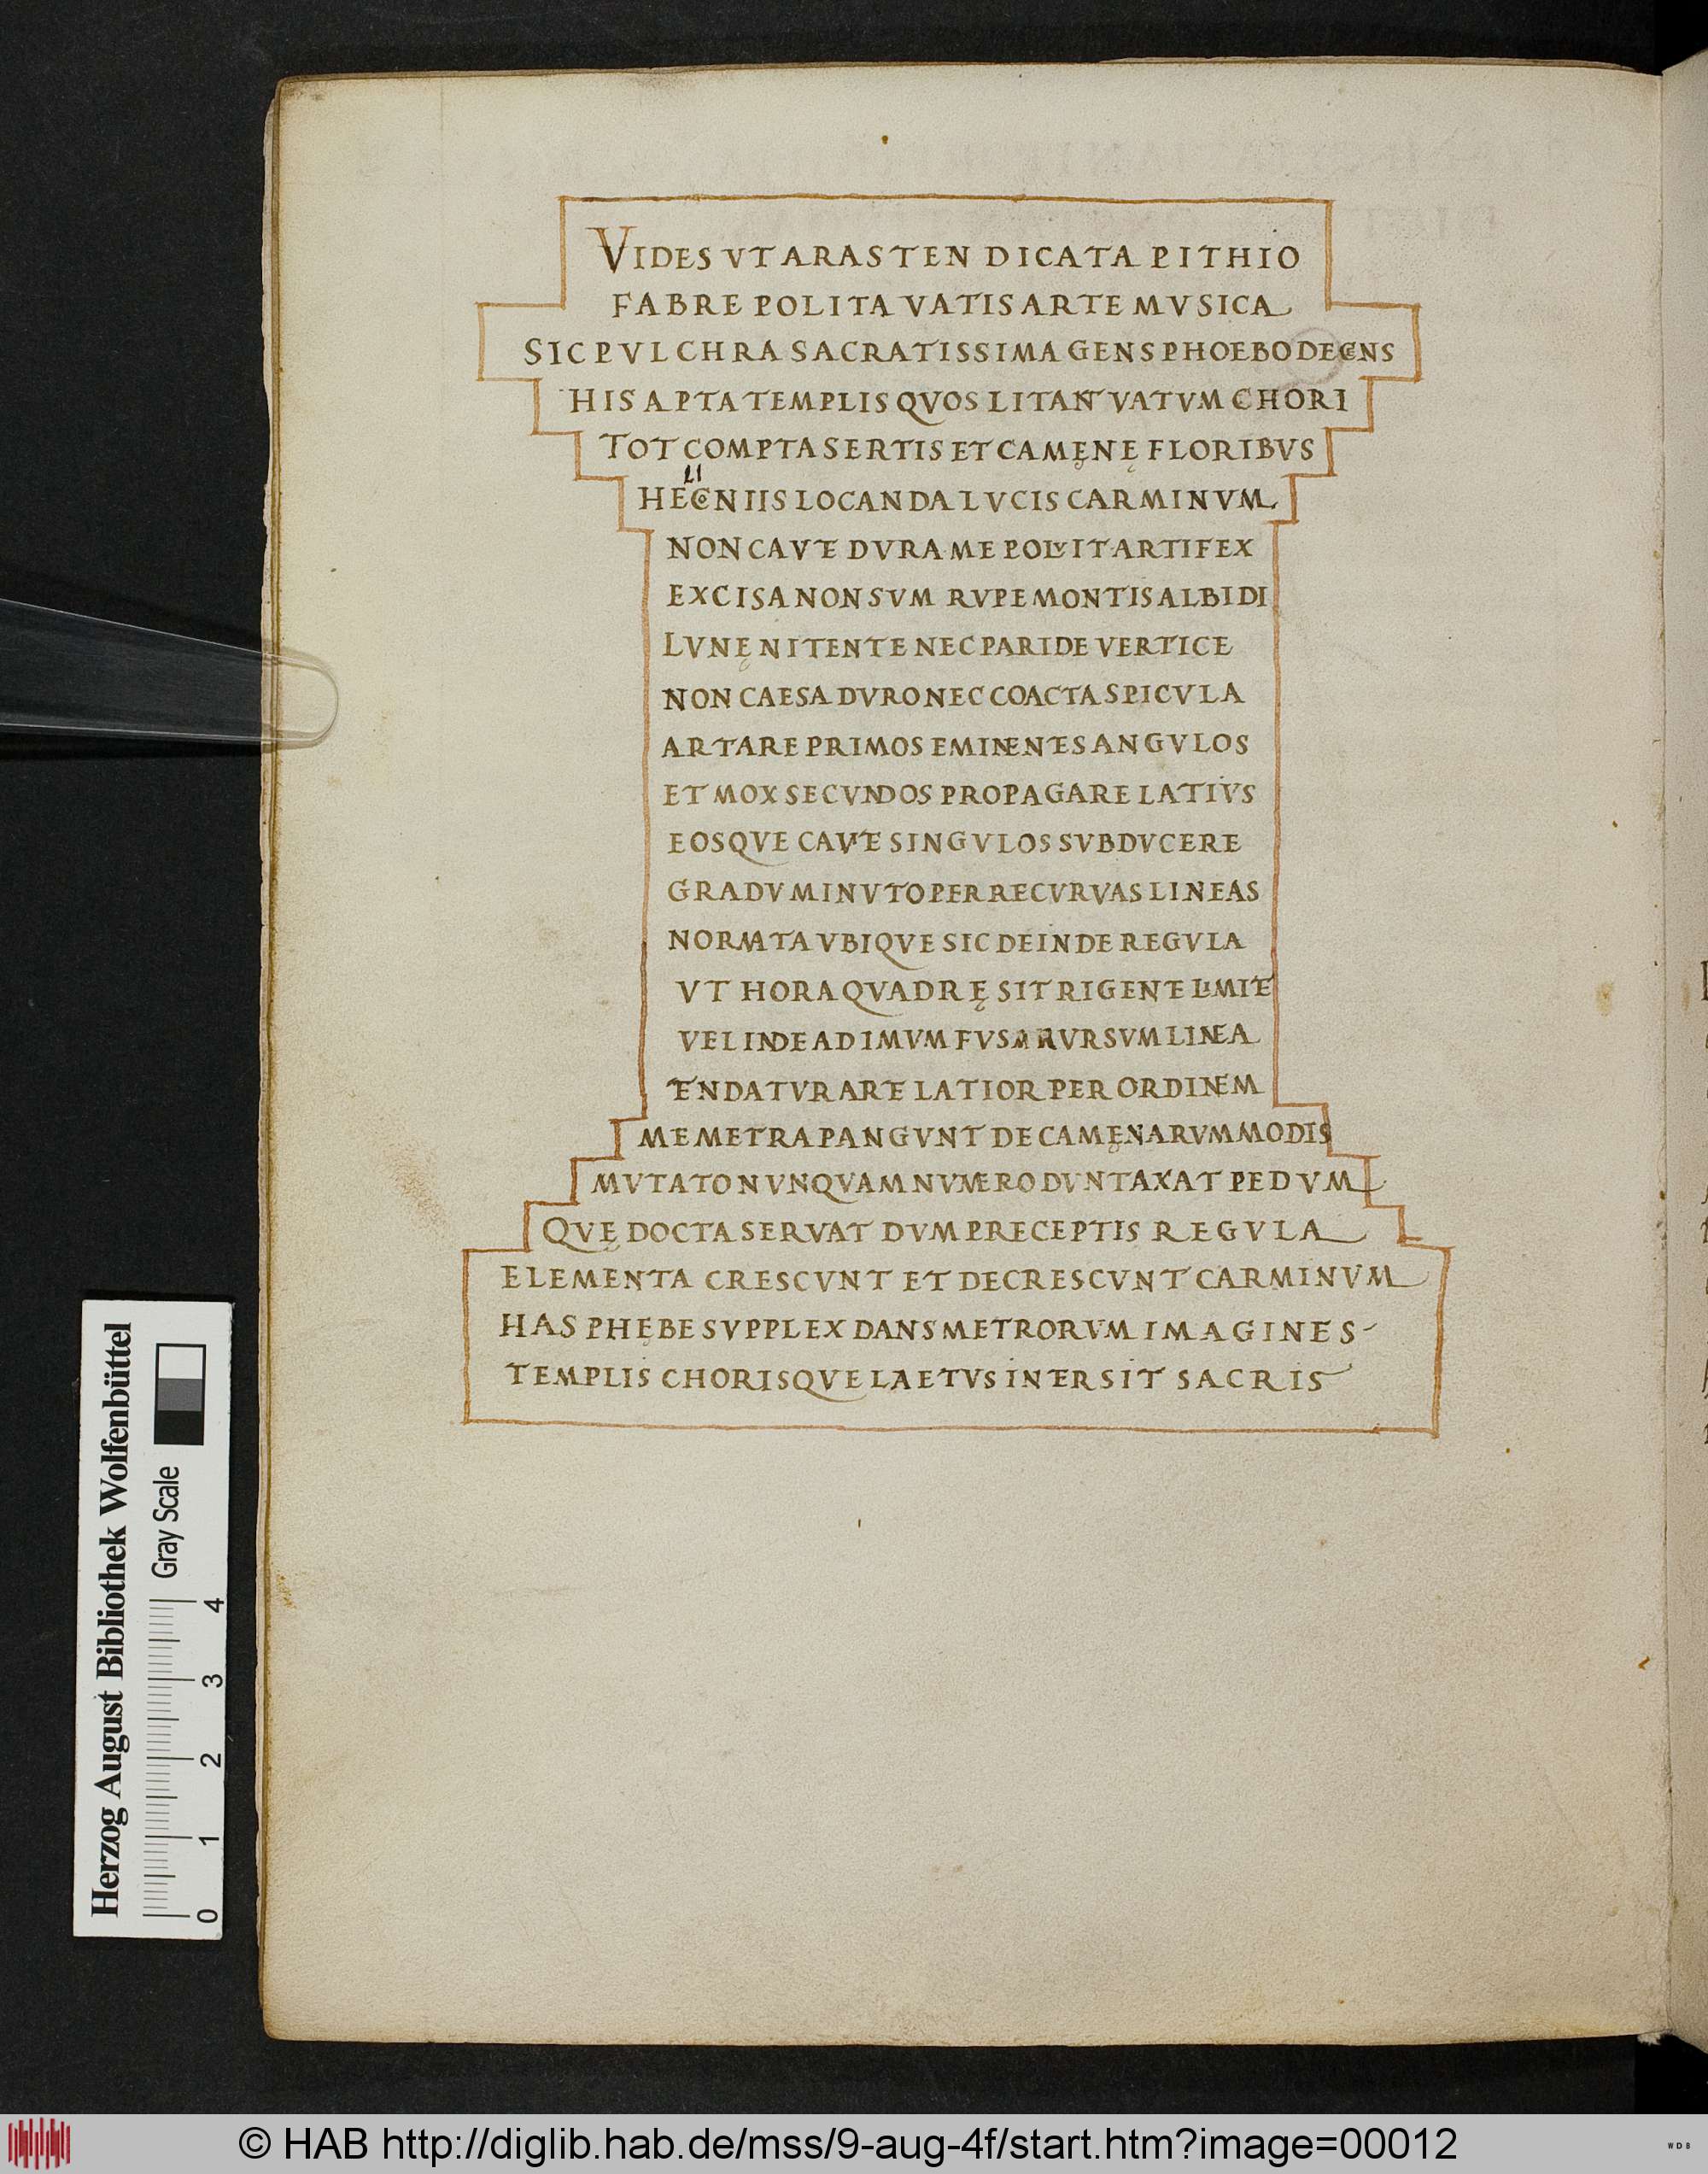 VIDES VT ARA STEN DICATA PITHIO
FABRE POLITA VATIS ARTE MVSICA
SIC PVLCHRA SACRATISSIMA GENS PHOEBO DECENS
HIS APTA TEMPLIS QVOS LITANT VATVM CHORI
TOT COMPTA SERTIS ET CAMĘNĘ FLORIBVS
LI
HECNIIS LOCANDA LVCIS CARMINVM
NON CAVTE DVRA ME POLVIT ARTIFEX
EXCISA NON SVM RVPE MONTIS ALBIDI
LVNĘ NITENTE NEC PARI DE VERTICE
NON CAESA DVRO NEC COACTA SPICVLA
ARTARE PRIMOS EMINENTES ANGVLOS
ET MOX SECVNDOS PROPAGARE LATIVS
EOSQVE CAVTE SINGVLOS SVBDVCERE
GRADV MINVTO PER RECVRVAS LINEAS
NORMATA VBIQVE SIC DEINDE REGVLA
VT HORA QVADRĘ SIT RIGENTE LIMITE
VEL INDE AD IMVM FVSA RVRSVM LINEA
TENDATVR ARTE LATIOR PER ORDINEM
ME METRA PANGVNT DE CAMĘNARVM MODIS
MVTATO NVNQVAM NVMERO DVNTAXAT PEDVM
QVĘ DOCTA SERVAT DVM PRECEPTIS REGVLA
ELEMENTA CRESCVNT ET DECRESCVNT CARMINVM
HAS PHĘBE SVPPLEX DANS METRORVM IMAGINES
TEMPLIS CHORISQVE LAETVS INTERSIT SACRIS
Herzog August Bibliothek Wolfenbüttel
Gray Scale
0 1 2 3 4
© HAB http://diglib.hab.de/mss/9-aug-4f/start.htm?image=00012
WDB